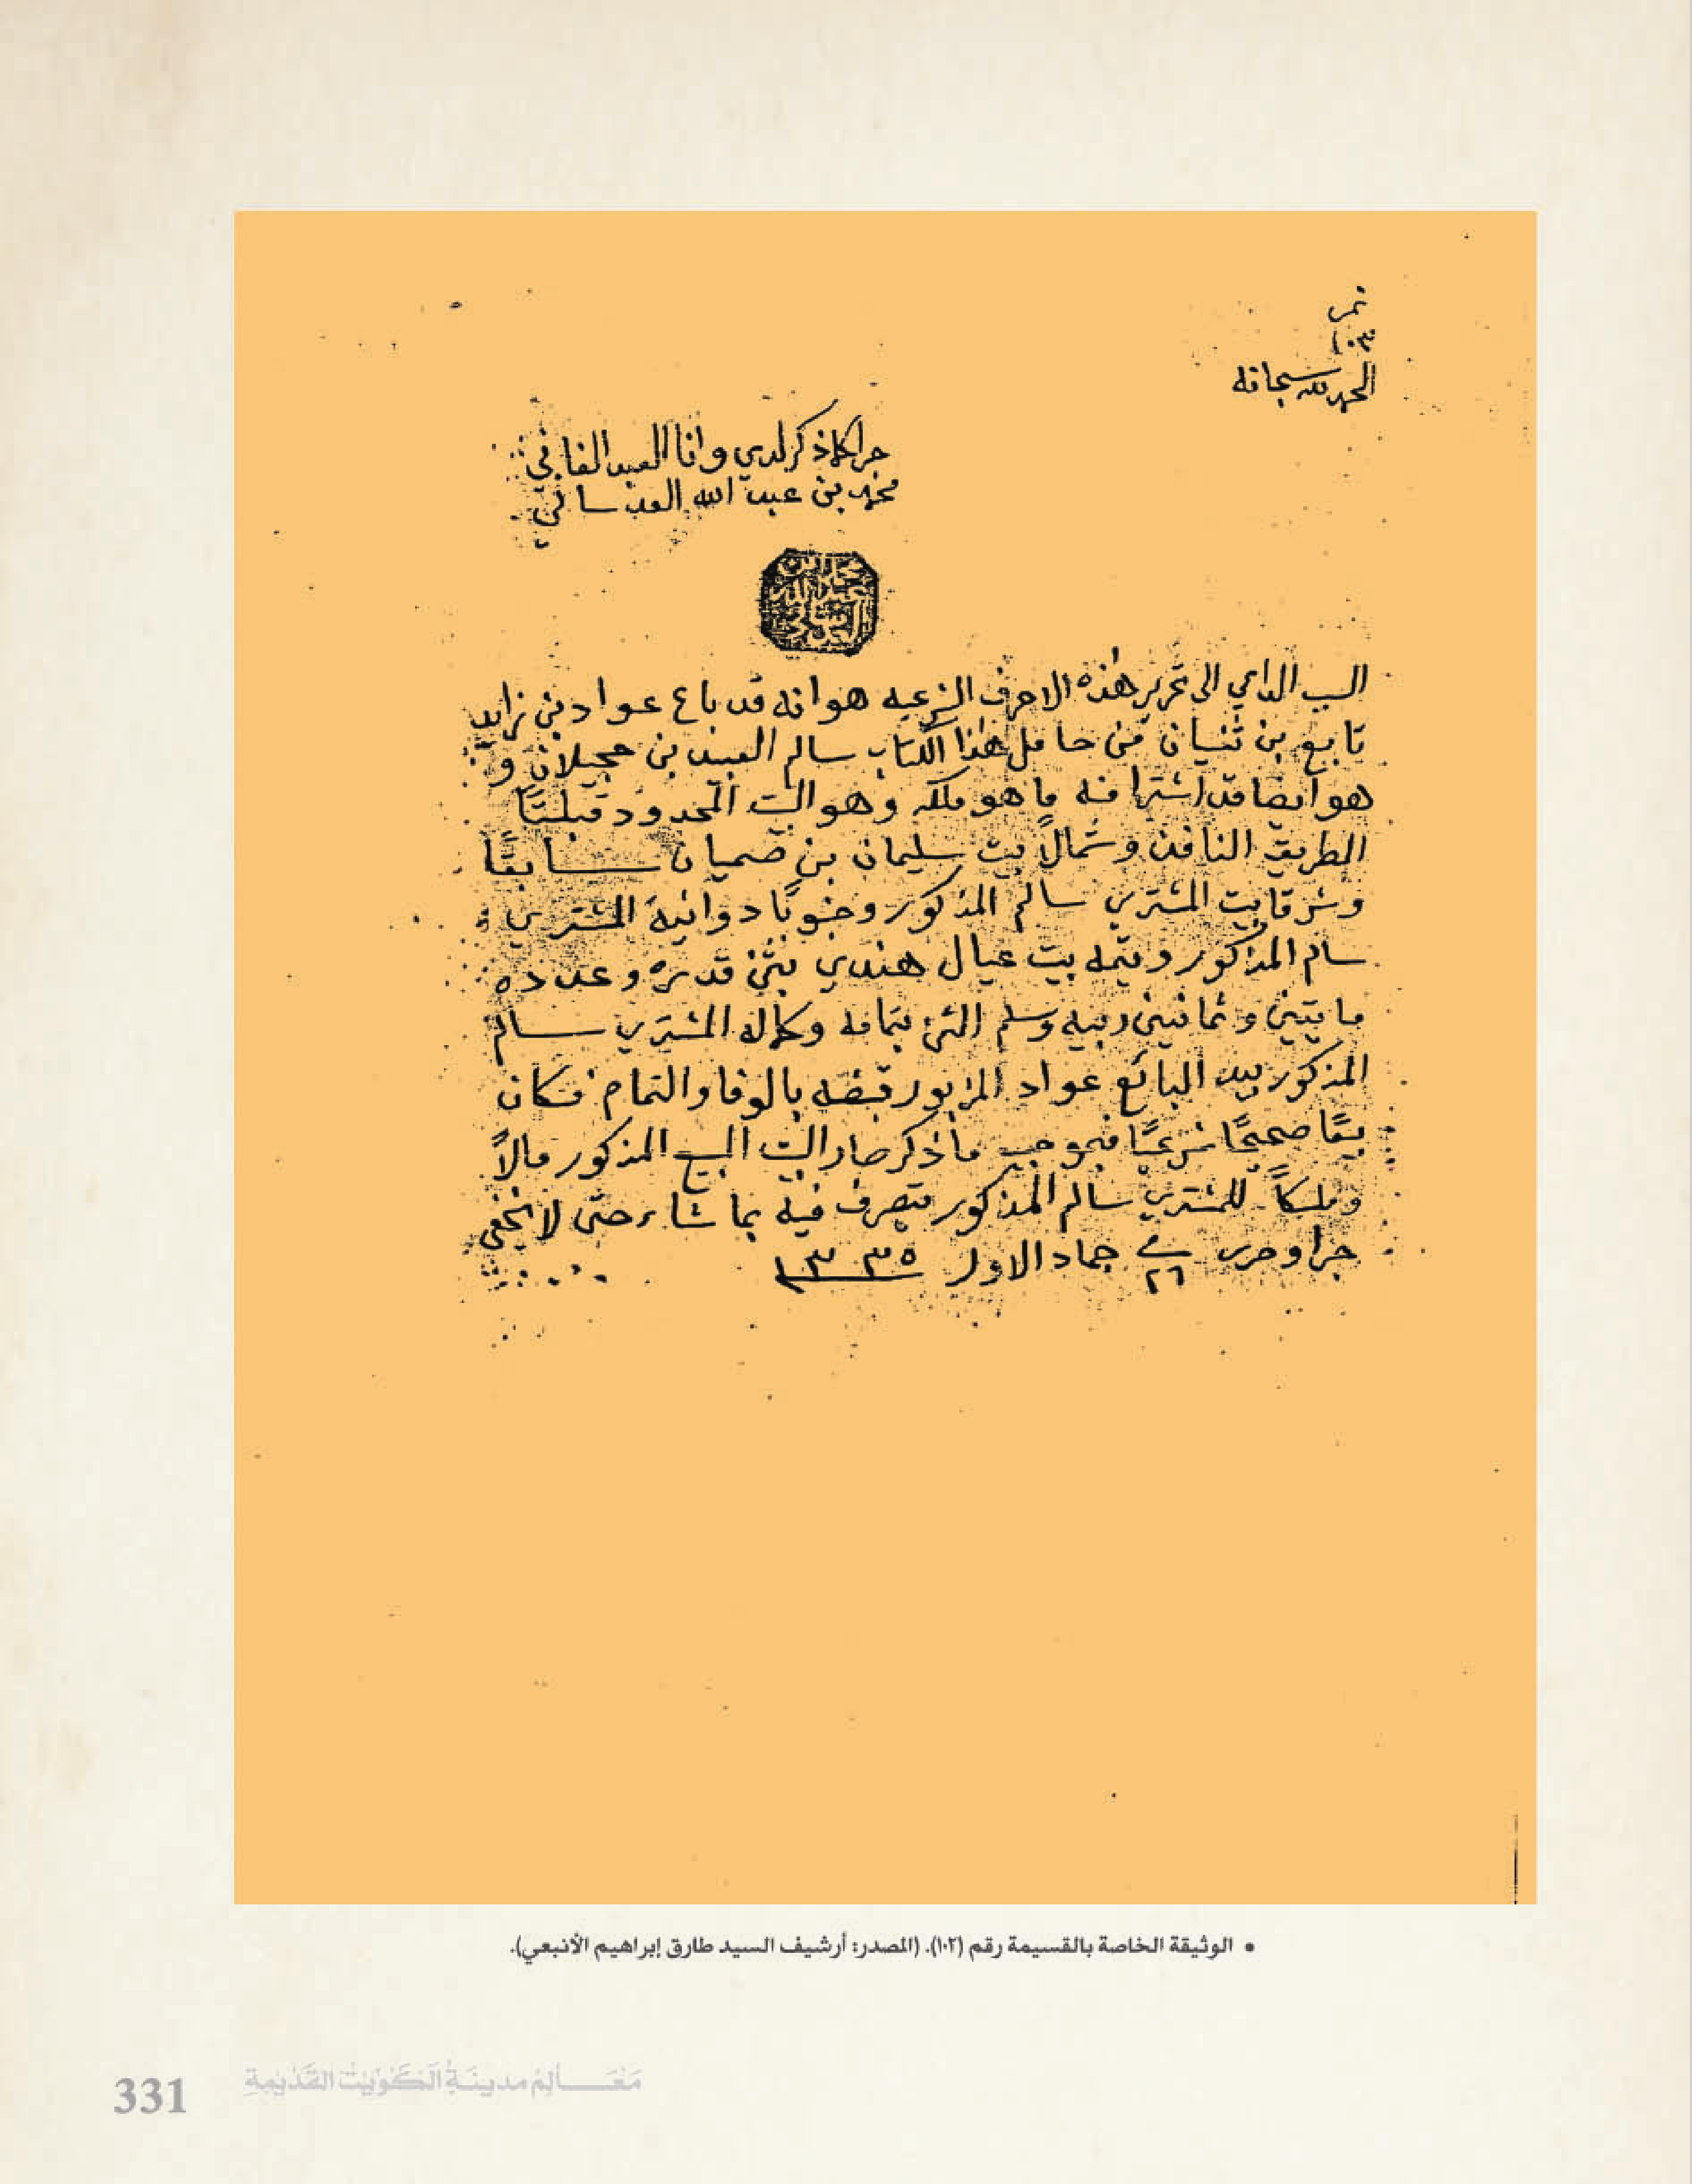 نمر
١٠٣
الحمد لله سبحانه
جرا كما ذكر لدي وانا العبد الفاني
محمد بن عبد الله العدساني
محمد بن
عبد الله
العدساني
السبب الداعي الى تحرير هذه الاحرف الشرعيه هو انه قد باع عواد بن زايد
تابع بن ثنيان من حامل هذا الكتاب سالم العبيد بن حجيلان و
هو ايضا قد اشترا منه ما هو ملكه وهو البيت المحدود قبلتًا
الطريق النافذ وشمالاً بيت سليمان بن صميان سابقًا
وشرقا بيت المشتري سالم المذكور وجنوبًا دوانية المشتري
سالم المذكور ويتمه بيت عيال هندي بثمن قدره وعدده
مايتين وثمانين ربيه وسلم الثمن بتمامه وكماله المشتري سالم
المذكور بيد البائع عواد المزبور قبضه بالوفا والتمام فكان
بيعًا صحيحًا شرعيًا فبموجب ما ذكر صار البيت المبيع المذكور مالاً
وملكاً للمشتري سالم المذكور يتصرف فيه بما شاء حتى لا يخفى
جرا وحرر في ٢٦ جماد الاول ١٣٣٥
• الوثيقة الخاصة بالقسيمة رقم (١٠٢). (المصدر: أرشيف السيد طارق إبراهيم الأنبعي).
مَعَـــالِمُ مدينَةِ الكُوَيْت القَدْيمةِ
331